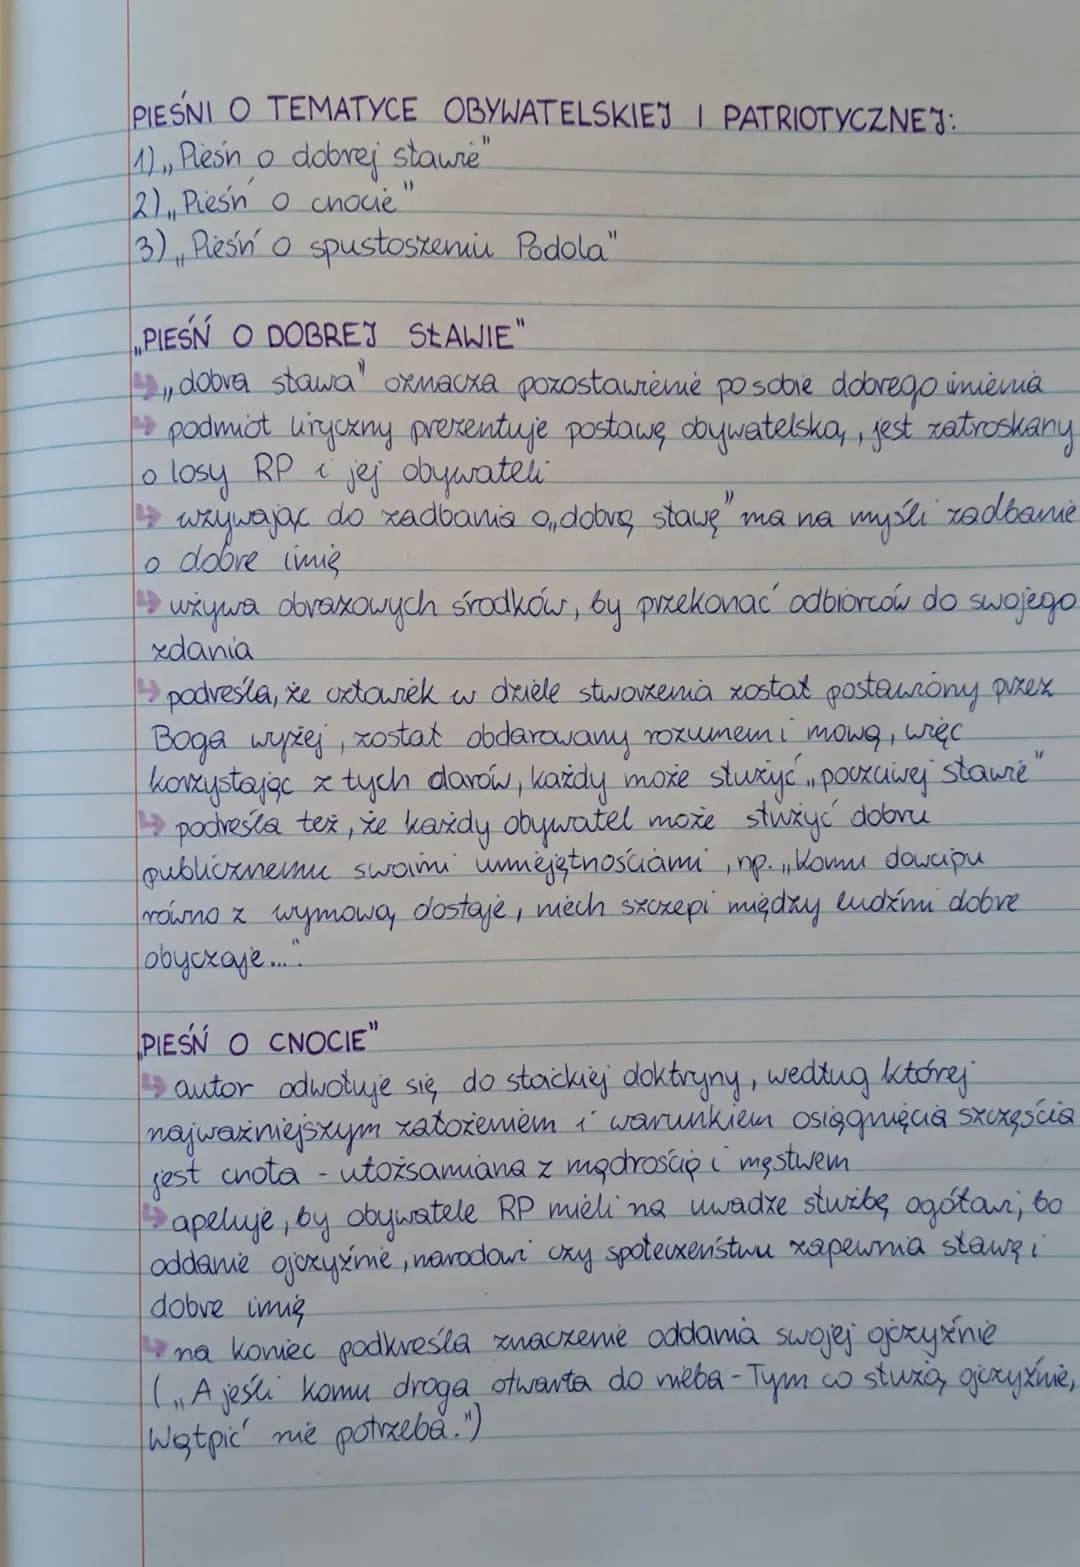 PIEŚNI O TEMATYCE OBYWATELSKIEJ I PATRIOTYCZNEJ:
1) „Pieśń o dobrej sławie"
2) „Pieśń o cnocie"
3) „Pieśń o spustoszeniu Podola"
„PIEŚŃ O DOBREJ SŁAWIE"
↳ „dobra sława" oznacza pozostawienie po sobie dobrego imienia
↳ podmiot liryczny prezentuje postawę obywatelską, jest zatroskany
o losy RP i jej obywateli
↳ wzywając do zadbania o „dobrą sławę" ma na myśli zadbanie
o dobre imię
↳ używa obrazowych środków, by przekonać odbiorców do swojego
zdania
↳ podreśla, że człowiek w dziele stworzenia został postawiony przez
Boga wyżej, został obdarowany rozumem i mową, więc
korzystając z tych darów, każdy może służyć „poczciwej sławie"
↳ podreśla też, że każdy obywatel może służyć dobru
publicznemu swoimi umiejętnościami, np. „Komu dowcipu
równo z wymową dostaje, niech szczepi między ludźmi dobre
obyczaje...".
„PIEŚŃ O CNOCIE"
↳ autor odwołuje się do stoickiej doktryny, według której
najważniejszym założeniem i warunkiem osiągnięcia szczęścia
jest cnota - utożsamiana z mądrością i męstwem
↳ apeluje, by obywatele RP mieli na uwadze służbę ogółowi; bo
oddanie ojczyźnie, narodowi czy społeczeństwu zapewnia sławę i
dobre imię
↳ na koniec podkreśla znaczenie oddania swojej ojczyźnie
(„A jeśli komu droga otwarta do nieba - Tym co służą ojczyźnie,
Wątpić nie potrzeba.")